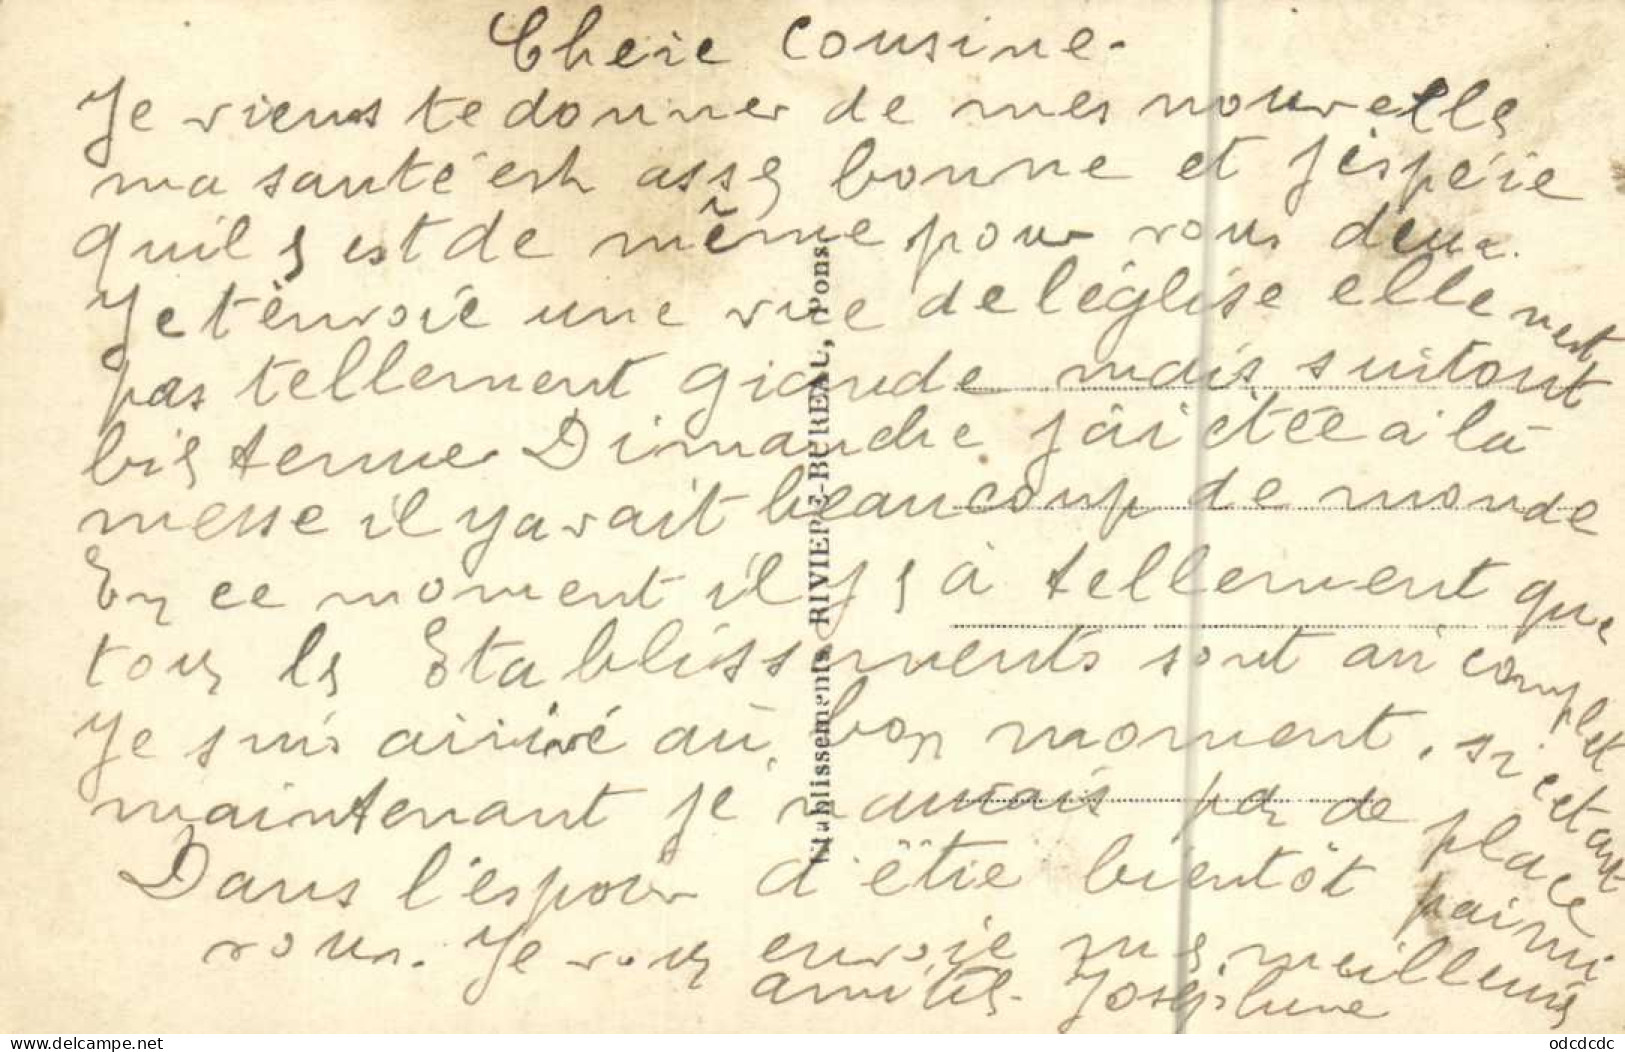 Cherie Cousine.
Je viens te donner de mes nouvelles
ma santé est assez bonne et j'espére
quil s est de même pour vous deux.
Je t'envoie une vue de l'église elle nest
pas tellement grande mais surtout
bien tenue Dimanche j'ai étée a la
messe il y avait beaucoup de monde
En ce moment il y s à tellement que
tous les Etablissements sont au complet
Je suis arrivé au bon moment. si cetait
maintenant je n'aurais pas de place
Dans l'espoir d'être bientôt parmi
vous. Je vous envoie mes meilleures
amitiés. Joséphine
Etablissements RIVIERE-BUREAU, Pons
delcampe.net
odcdcdc